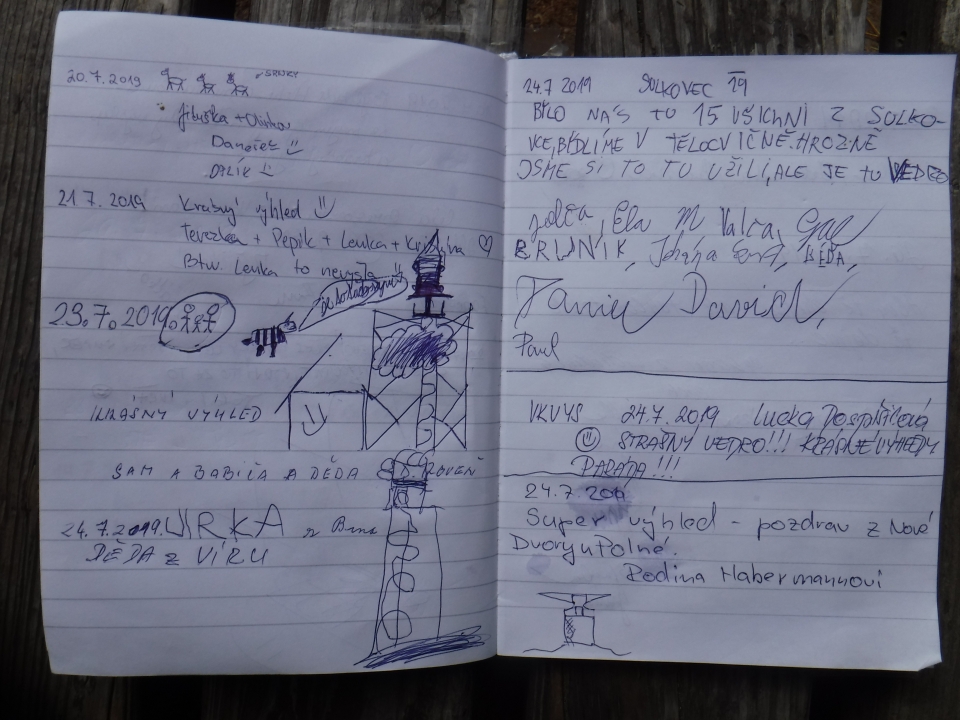 20.7.2019
Jituška +
Daneček
DALÍK
21.7.2019 Krásný výhled
Terezka + Pepík + Lenka +
Btw. Lenka to nevyšla
23.7.2019
KRÁSNÝ VÝHLED
SAM A BABIČA A DĚDA
24.7.2019. JIRKA z Brna
DĚDA z VÍRU
24.7 2019 SULKOVEC 19
BYLO NÁS TU 15 VŠICHNI Z SULKO-
VCE, BYDLÍME V TĚLOCVIČNĚ. HROZNĚ
JSME SI TO TU UŽILI, ALE JE TU VEDRO
Ela M Valča,
BRUNÍK, BÉĎA,
David,
Pavel
VKVYS 24.7.2019 Lucka Pospíšilová
STRAŠNÝ VEDRO!!! KRÁSNÉ VÝHLEDY
PARÁDA!!!
24.7.
Super výhled - pozdrav z Nové
Dvory u Polné.
Rodina Habermannovi